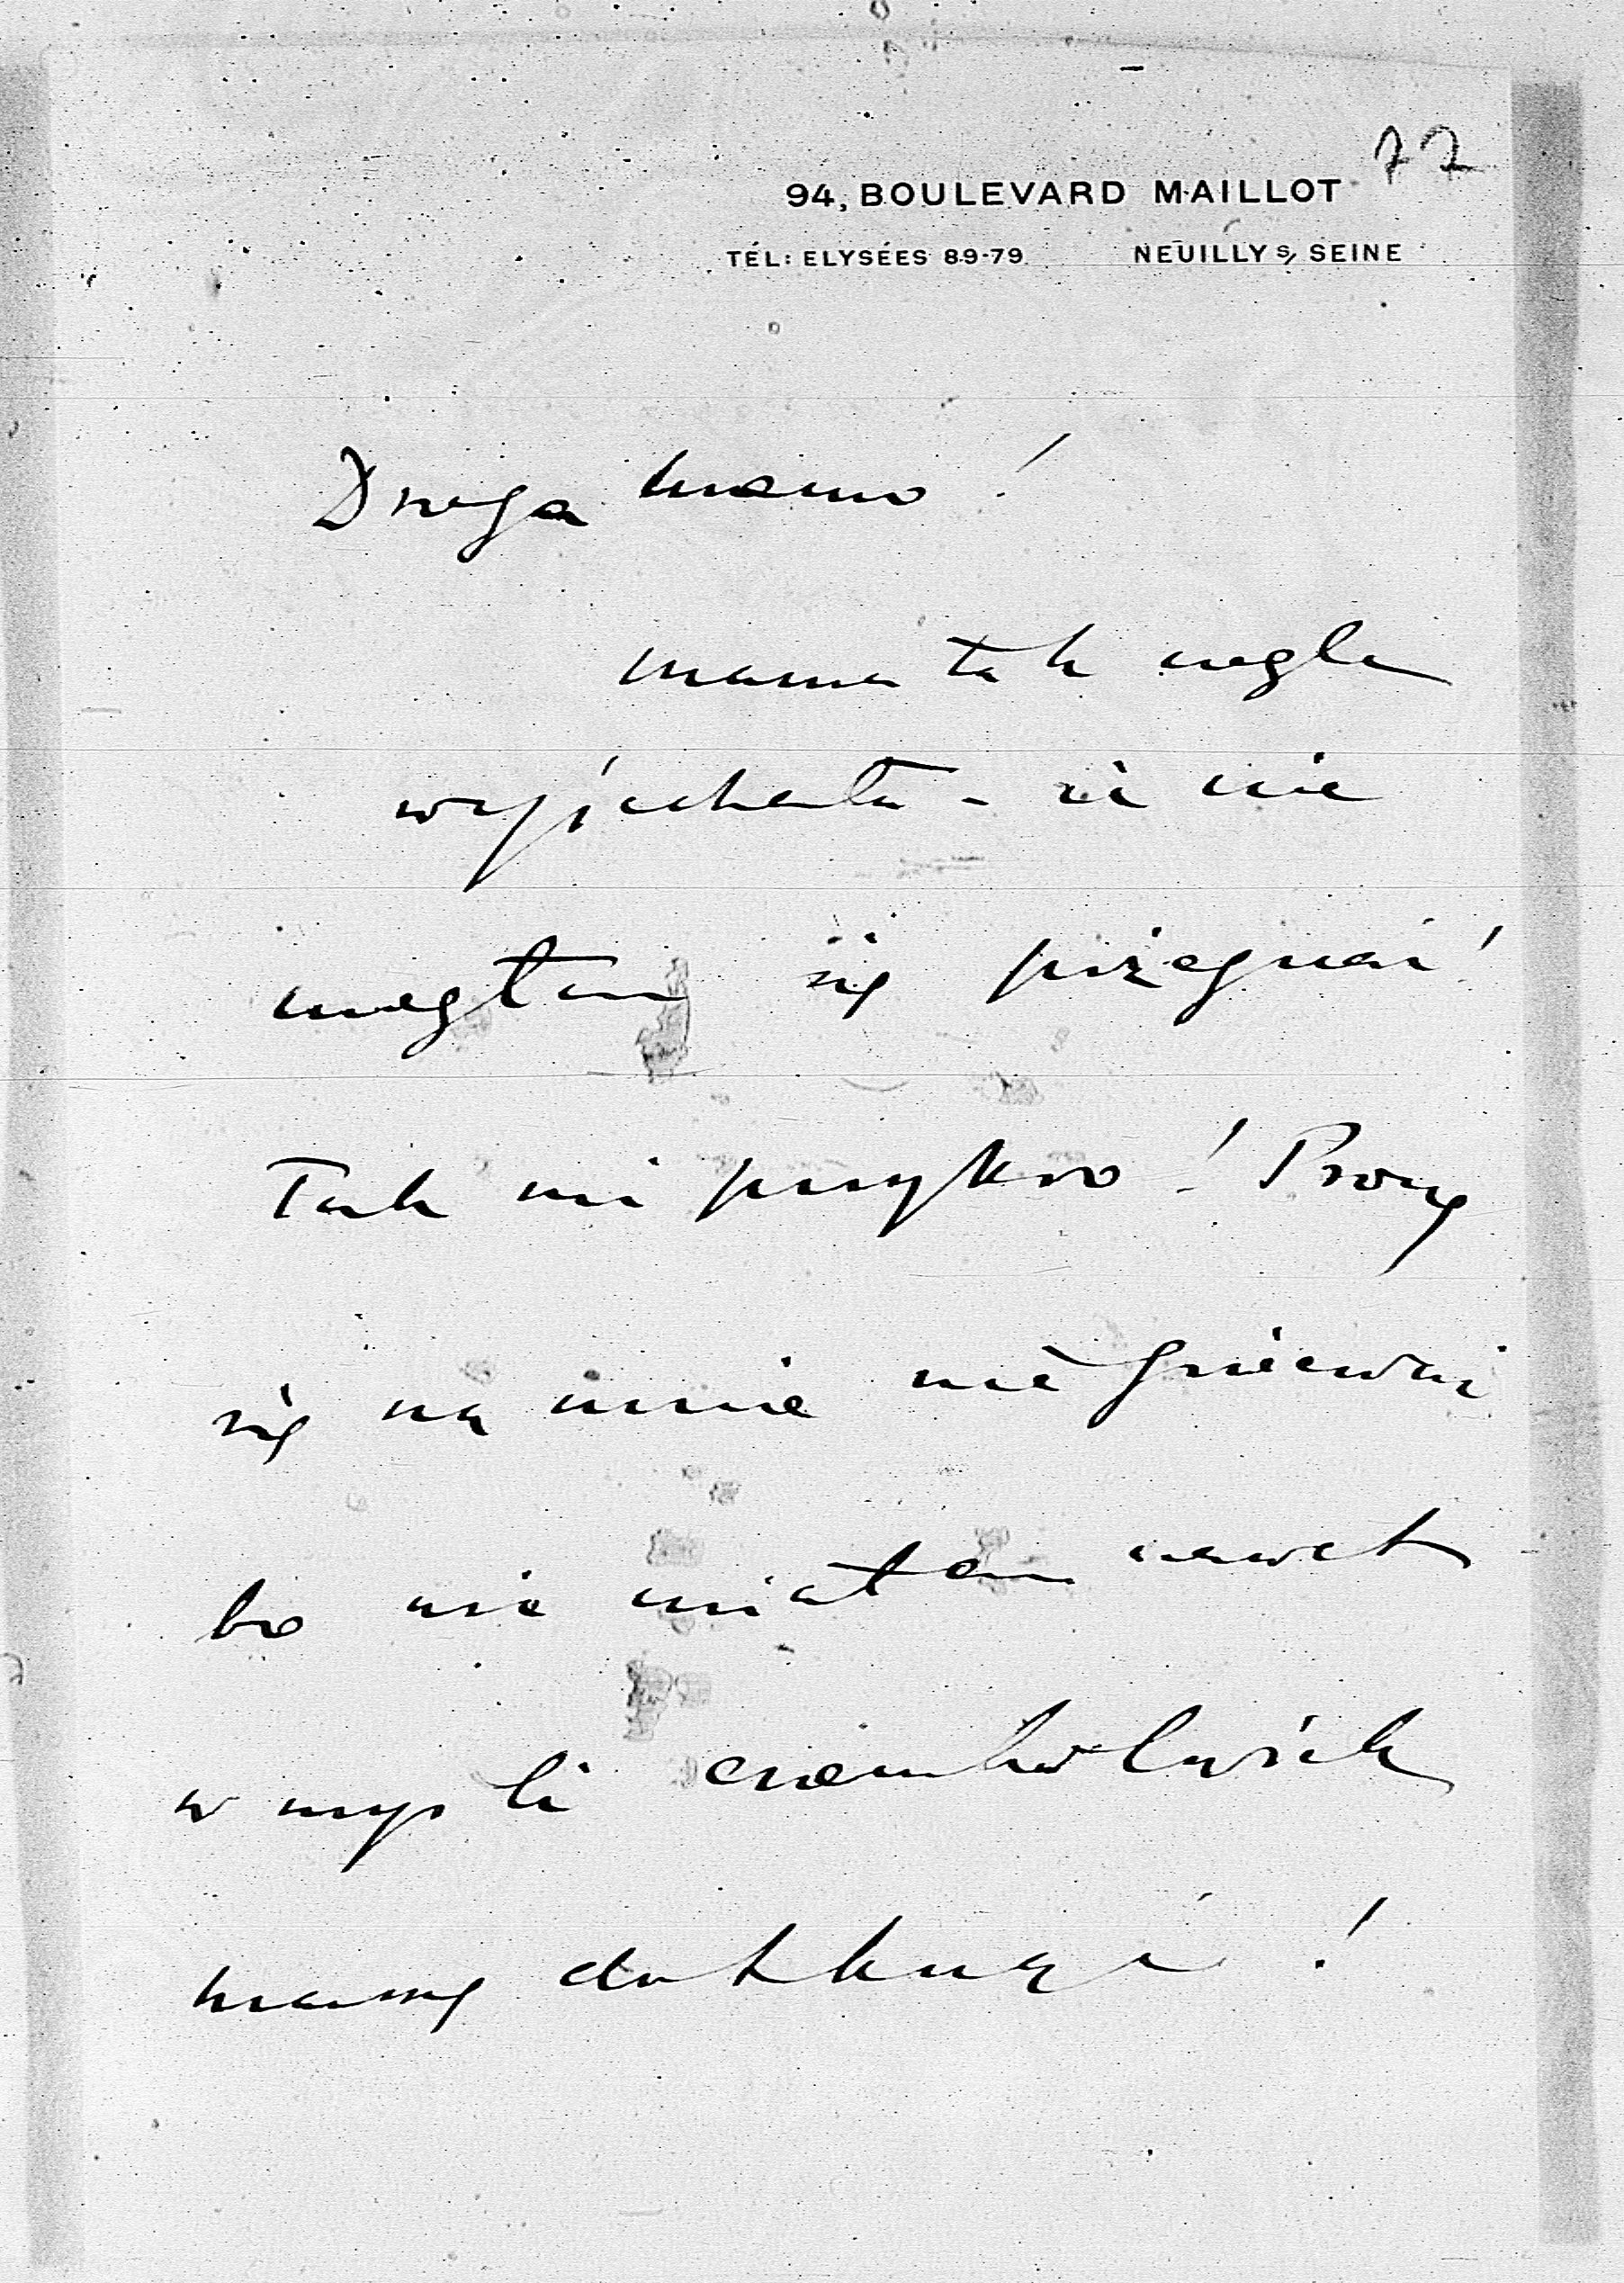 77
94, BOULEVARD MAILLOT
TÉL: ELYSÉES 89-79 NEUILLY s/ SEINE
Droga mamo!
mama tak nagle
wyjechała - że nie
mogłem się pożegnać!
Tak mi przykro! Proszę
się na mnie nie gniewać
bo nie miałem nawet
w myśli czemkolwiek
mamy dotknąć!